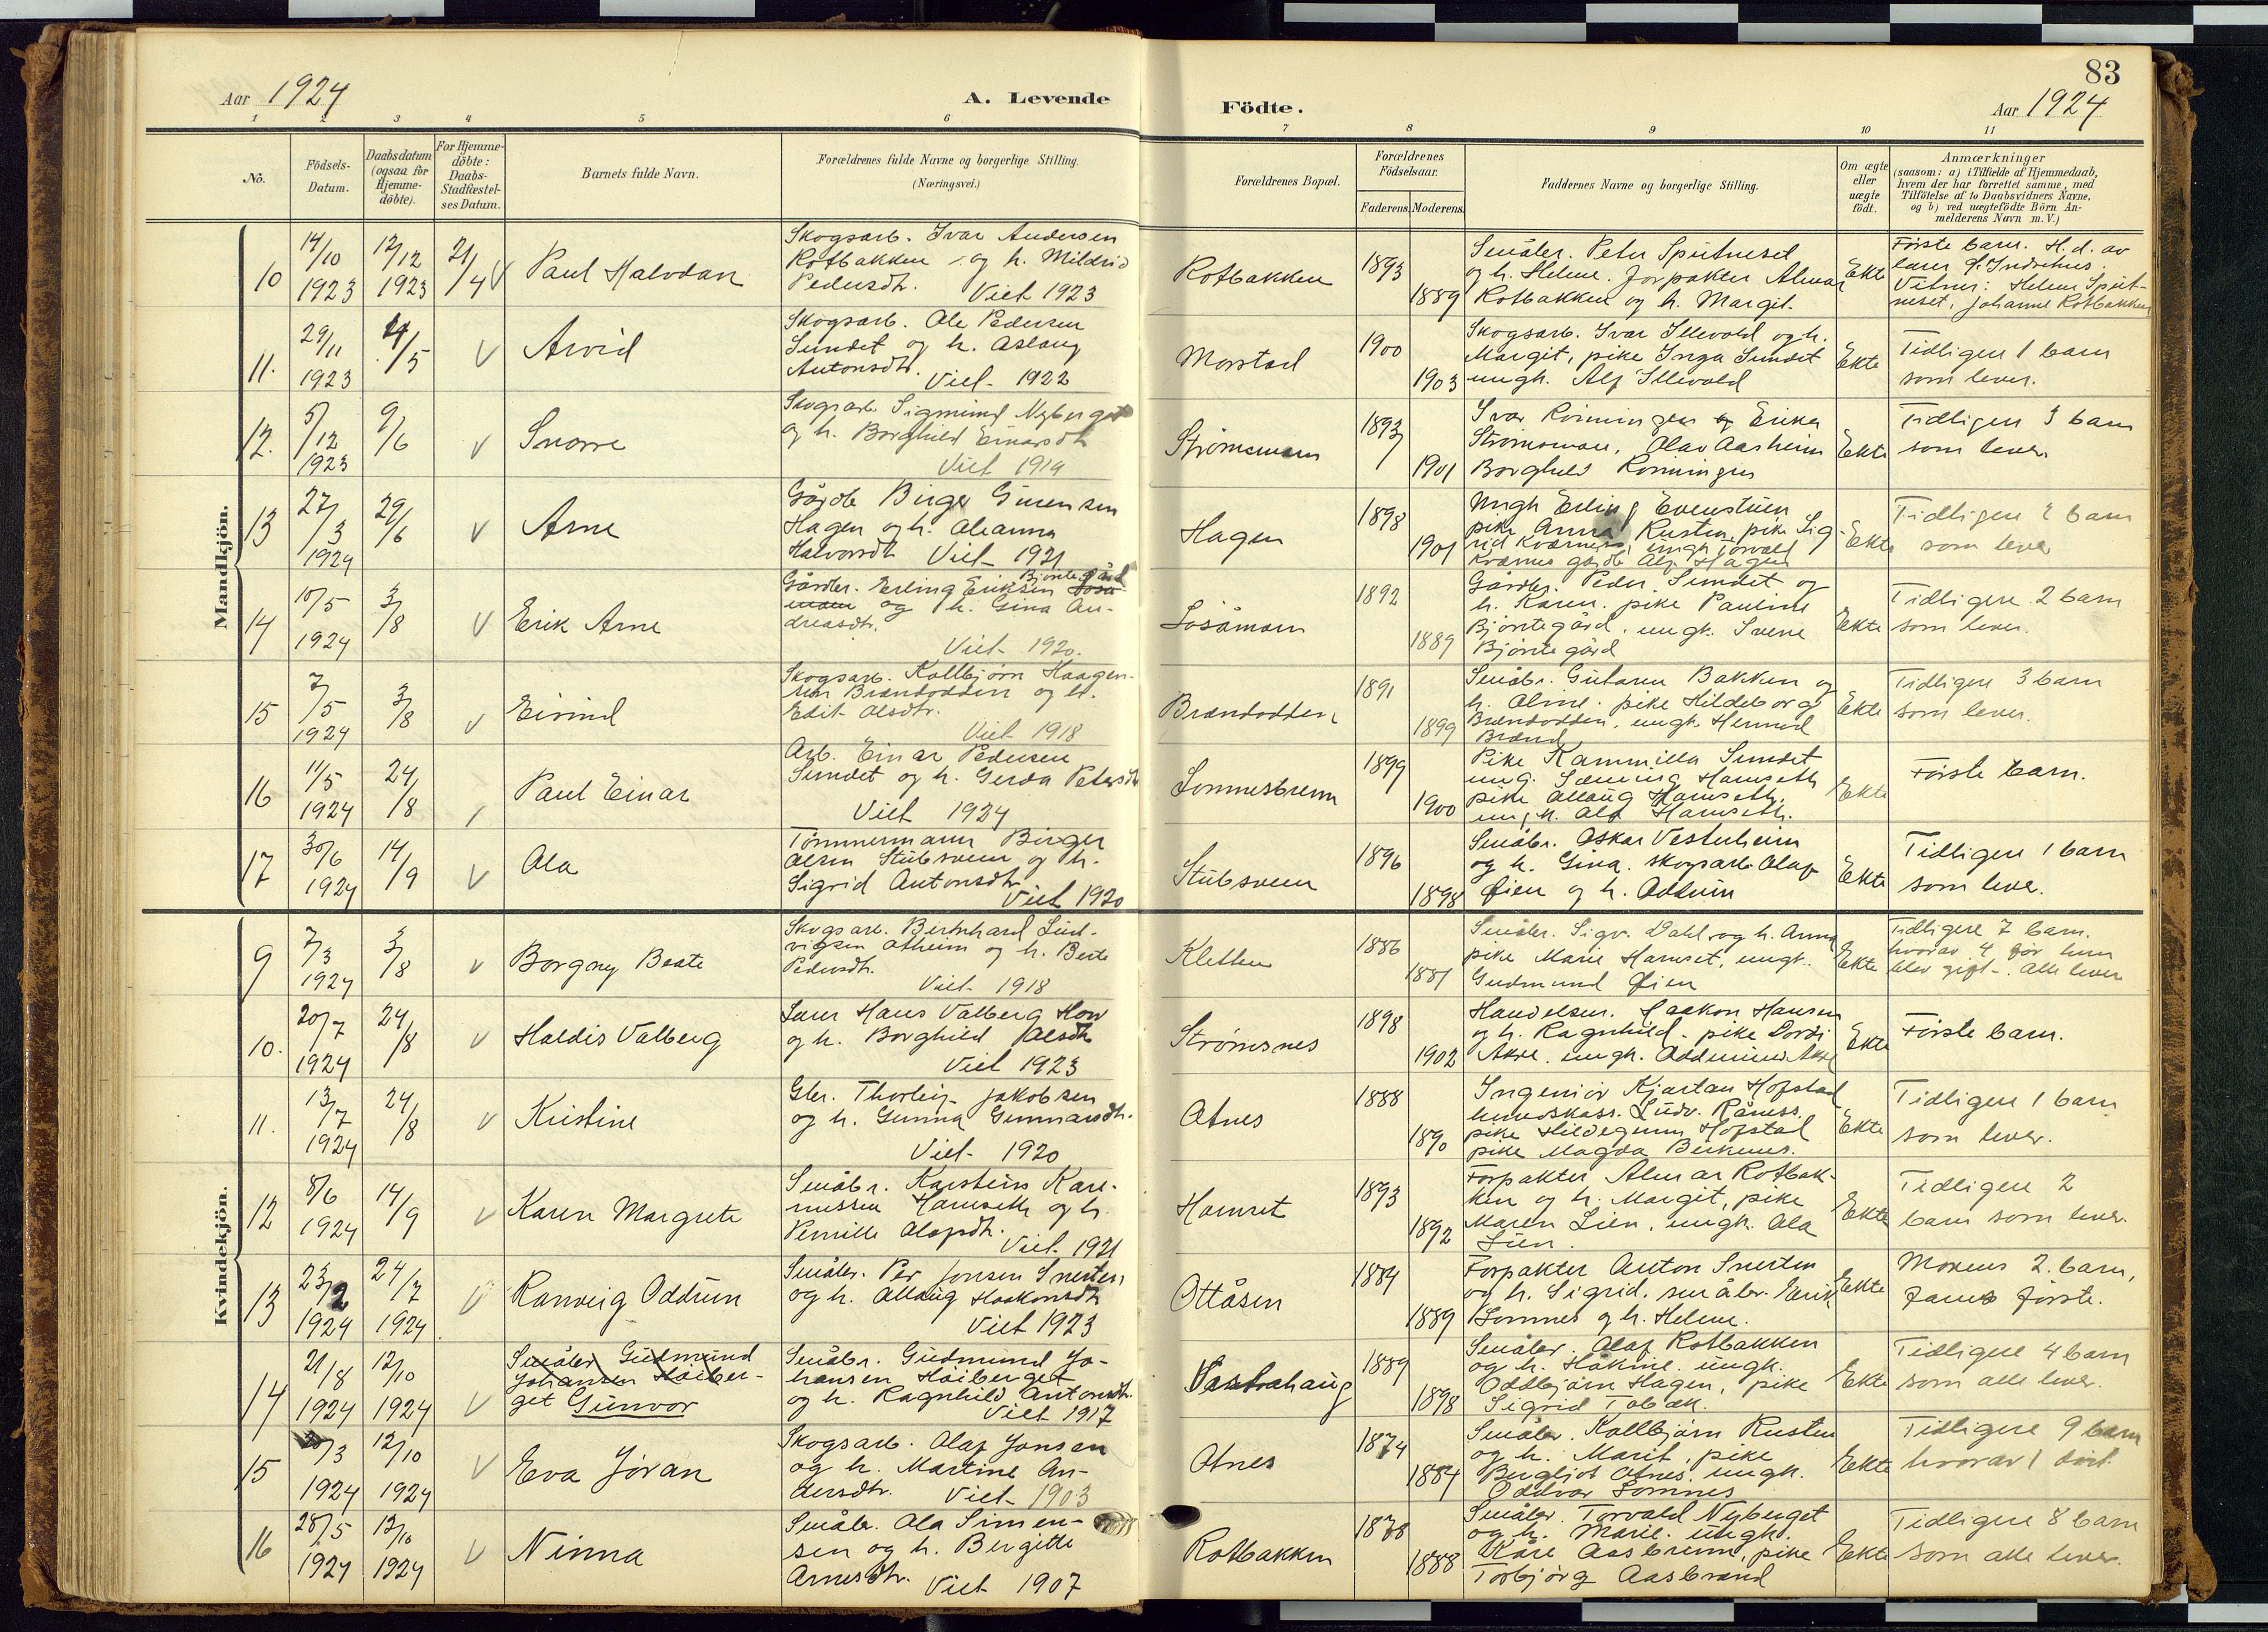 Aar 1924
A. Levende
Födte.
83
Aar 1924
1 2 3 4 5 6 7 8 9 10 11
No.
Födsels-
Datum.
Daabsdatum
(ogsaa for
Hjemme-
döbte).
For Hjemme-
döbte:
Daabs-
Stadfæstel-
ses Datum.
Barnets fulde Navn.
Forældrenes fulde Navne og borgerlige Stilling.
(Næringsvei.)
Forældrenes Bopæl.
Forældrenes
Födselsaar.
Faderens. Moderens.
Faddernes Navne og borgerlige Stilling.
Om ægte
eller
uægte
födt.
Anmærkninger
(saasom: a) i Tilfælde af Hjemmedaab,
hvem der har forrettet samme, med
Tilföielse af to Daabsvidners Navne,
og b) ved uægtefödte Börn An-
melderens Navn m. V.)
Mandkjön.
10
14/10
1923
12/12
1923
21/4 V
Paul Halvdan
Skogsarb. Ivar Andersen
Rotbakken og h. Mildrid
Pedersdtr. Viet 1923
Rotbakken
1893
1889
Småbr. Peter Sputneset
og h. Helene. Forpakter Almar
Rotbakken og h. Margit.
Ekte
Første barn. H. d. av
lærer O. Indrehus.
Vitner: Helene Sput-
neset, Johanne Rotbakken
11.
29/11
1923
4/5
V
Arvid
Skogsarb. Ole Pedersen
Sundet og h. Aslaug
Antonsdtr. Viet 1922
Morstad
1900
1903
Skogsarb. Ivar Illevold og h.
Margit, pike Inga Sundet
ungk. Alf Illevold
Ekte
Tidligere 1 barn
som lever.
12.
5/12
1923
9/6
V
Snorre
Skogsarb. Sigmund Nyberget
og h. Borghild Einarsdtr
Viet 1919
Strømsmoen
1893
1901
Ivar Rønningen og Erika
Strømsmoen, Olav Aasheim
Borghild Rønningen
Ekte
Tidligere 3 barn
som lever
13
27/3
1924
29/6
V
Arne
Gårdb Birger Gurensen
Hagen og h. Oleanna
Halvorsdtr Viet 1921
Hagen
1898
1901
Ungk Erling Evenstuen
pike Anna Rusten, pike Sig-
rid Kværnes, ungk Torvald
Kværnes gårdb Alf Hagen
Ekte
Tidligere 2 barn
som lever
14
10/5
1924
3/8
V
Erik Arne
Bjøntegård
Gårdbr. Erling Eriksen Løså-
moen og h. Gina An-
dreasdtr.
Viet 1920.
Løsåmoen
1892
1889
Gårdbr. Peder Sundet og
h. Karen. pike Pauline
Bjøntegård, ungk. Svene
Bjøntegård
Ekte
Tidligere 2 barn
som lever.
15
7/5
1924
3/8
V
Eivind
Skogsarb. Kolbjørn Haagen-
sen Brændodden og h.
Edit Olsdtr.
Viet 1918
Brændodden
1891
1899
Småbr. Gutorm Bakken og
h. Oline. pike Hildeborg
Brændodden, ungk. Hermod
Brænd
Ekte
Tidligere 3 barn
som lever.
16
11/5
1924
24/8
Paul Einar
Arb. Einar Pedersen
Sundet og h. Gerda Petersdtr
Viet 1924
Lomnesbrenn
1899
1900
Pike Kammilla Sundet
ung. Sæming Hamseth
pike Allaug Hamseth,
ungk. Alf Hamseth.
Ekte
Første barn.
17
30/6
1924
14/9
V
Ola
Tømmermann Birger
Olsen Stubsveen og h.
Sigrid Antonsdtr
Viet 1920
Stubsveen
1896
1898
Småbr. Oskar Vesterheim
og h. Gina. skogsarb. Olaf
Øien og h. Oddrun
Ekte
Tidligere 1 barn
som lever.
Kvindekjön.
9
7/3
1924
3/8
V
Borgny Beate
Skogsarb. Bernhard Lud-
vigsen Atheim og h. Berte
Pedersdtr.
Viet 1918
Kletten
1886
1881
Småbr. Sigv. Dahl og h. Anna
pike Marie Hamset, ungk.
Gudmund Øien
Ekte
Tidligere 7 barn.
hvorav 4 før hun
blev gift. Alle lever
10.
20/7
1924
24/8
V
Haldis Valberg
Lærer Hans Valberg Hov
og h. Borghild Olsdtr
Viet 1923
Strømsnes
1898
1902
Handelsm. Haakon Hansen
og h. Ragnhild. pike Dordi
Akre. ungk. Oddmund Akre
Ekte
Første barn.
11.
13/7
1924
24/8
V
Kristine
Gbr. Thorleif Jakobsen
og h. Gunna Gunnarsdtr.
Viet 1920
Atnes
1888
1890
Ingeniør Kjartan Hofstad
herredskass. Ludv. Råness,
pike Hildegunn Hofstad
pike Magda Beiknes.
Ekte
Tidligere 1 barn
som lever.
12
8/6
1924
14/9
V
Karen Margrete
Småbr. Karstein Kare-
niussen Hamseth og h.
Pernille Olafsdtr.
Viet 1921
Hamset
1893
1892
Forpakter Almar Rotbak-
ken og h. Margit, pike
Maren Lien, ungk. Ola
Lien.
Ekte
Tidligere 2
barn som lever.
13
23/2
1924
24/7
1924
V
Ranveig Oddrun
Småbr. Per Jonsen Snerten
og h. Allaug Haakonsdtr
Viet 1923
Ottåsen
1884
1889
Forpakter Anton Snerten
og h. Sigrid. småbr. Erik
Lomnes og h. Helene.
Ekte
Morens 2. barn,
Farens første.
14
21/8
1924
12/10
1924
V
Småbr. Gudmund
Johansen Høiber-
get Gunvor
Småbr. Gudmund Jo-
hansen Høiberget
og h. Ragnhild Antonsdtr.
Viet 1917
Vestrahaug
1889
1898
Småbr. Olaf Rotbakken
og h. Håkine. ungk.
Oddbjørn Hagen, pike
Sigrid Tobak.
Ekte
Tidligere 4 barn
som alle lever.
15
20/3
1924
12/10
1924
V
Eva Jøran
Skogsarb. Olaf Jonsen
og h. Martine An-
dersdtr. Viet 1903
Atnes
1874
1884
Småbr. Kolbjørn Rusten
og h. Marit, pike
Bergljot Atnes, ungk.
Oddvar Lomnes
Ekte
Tidligere 9 barn
hvorav 1 død.
16
28/5
1924
12/10
1924
V
Ninna
Småbr. Ola Simen-
sen og h. Bergitte
Arnesdtr. Viet 1907
Rotbakken
1878
1888
Småbr. Torvald Nyberget
og h. Marie. ungk.
Kåre Aasbrenn, pike
Torbjørg Aasbrænd
Ekte
Tidligere 8 barn
som alle lever.